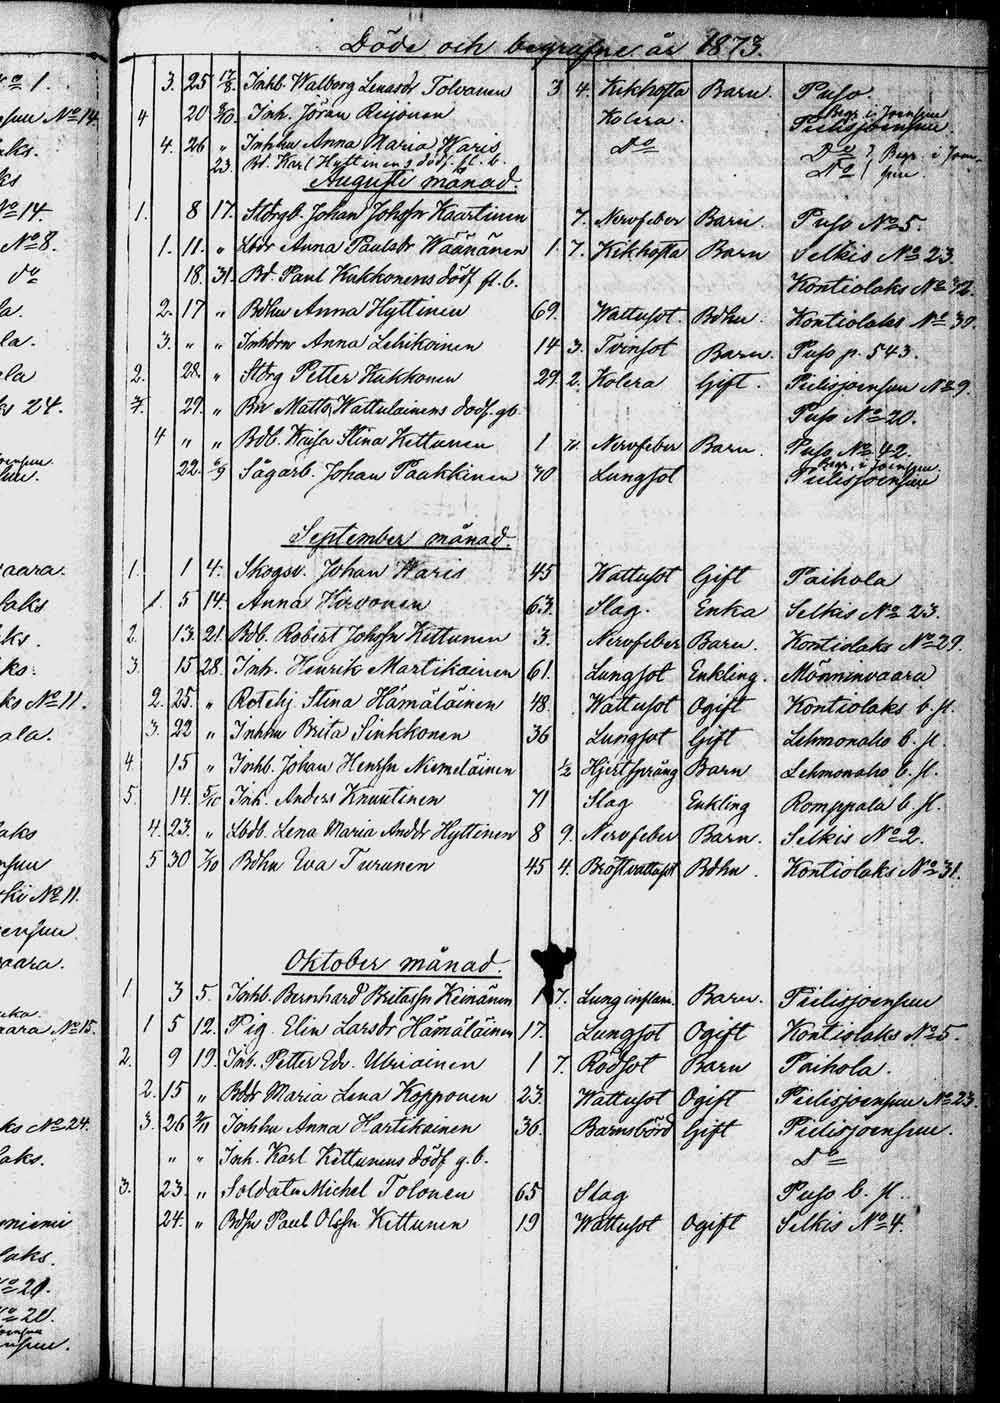 Döde och begrafne år 1873.
3. 25 17/8. Inhb. Walborg Lenasdr Tolvanen 3 4. Kikhosta Barn. Puso
4 20 Inh. Jöran Reijonen Kolera. Begr. i Joensuu Pielisjoensuu
4. 26 " Inhhu Anna Maria Waris Do Do } Begr. i Joen-
23. Bd. Karl Hyttinens dödf. fl. b. No } suu.
Augusti månad.
1. 8 17. Störgb. Johan Johssn Kaartinen 7. Nervfeber Barn. Puso No 5.
1. 11. " Lbdr Anna Paulsdr Wäänänen 1 7. Kikhosta Barn Selkis No 23.
18. 31. Bd. Paul Kukkonens dödf. fl. b. Kontiolaks No 12.
2. 17 " Bdhu Anna Hyttinen 69. Wattusot. Bdhu. Kontiolaks No 39.
3. " " Inhdrn Anna Lehikoinen 14 3. Tvinsot Barn. Puso p. 543.
2. 28. " Störg Petter Kukkonen 29. 2. Kolera Gift. Pielisjoensuu No 9.
29. " Bn Matts Wattulainens dödf. gb. Puso No 20.
4 " " Bdb. Kaisa Stina Kettunen 1 Nervfeber Barn. Puso No 42.
22. Sågarb. Johan Paakkinen 30 Lungsot Begr. i Joensuu. Pielisjoensuu
September månad.
1. 1 4. Skogsv. Johan Waris 45 Wattusot Gift Paihola
1. 5 14. Anna Hirvonen 63. Slag. Enka Selkis No 23.
2. 13. 21. Bdb. Robert Johssn Kettunen 3. Nervfeber Barn. Kontiolaks No 29.
3. 15 28. Inh. Henrik Martikainen 61. Lungsot Enkling. Mönninvaara
2. 25. " Rotehj. Stina Hämäläinen 48. Wattusot Ogift Kontiolaks b. fl.
3. 22 " Inhhu Brita Sinkkonen 36 Lungsot Gift Lehmonaho b. fl.
4. 15 " Inhb. Johan Henssn Niemeläinen 1/2 Hjertsprång Barn Lehmonaho b. fl.
5. 14. 5/10 Inh. Anders Knuutinen 71 Slag Enkling Romppala b. fl.
4. 23. " Lbdb. Lena Maria Anddr Hyttinen 8 9. Nervfeber Barn. Selkis No 2.
5 30 Bdhu Eva Turunen 45 4. Bröstvattusot Bdhu. Kontiolaks No 31.
Oktober månad.
1 3 5. Inhb. Bernhard Britassn Keinänen 1 7. Lunginflam. Barn. Pielisjoensuu
1 5 12. Pig. Elin Larsdr Hämäläinen 17. Lungsot Ogift Kontiolaks No 5.
2. 9 19. Inb. Petter Edv. Uhriainen 1 7. Rödsot Barn Paihola.
2. 15 " Bddr Maria Lena Kopponen 23. Wattusot Ogift Pielisjoensuu No 23.
3. 26 2/11 Inhhu Anna Hartikainen 36. Barnsbörd Gift Pielisjoensuu.
" " Inh. Karl Kettunens dödf g. b. Do
3. 23. " Soldaten Michel Tolonen 65 Slag Puso b. fl.
24. " Bdsn Paul Olssn Kettunen 19 Wattusot Ogift Selkis No 4.